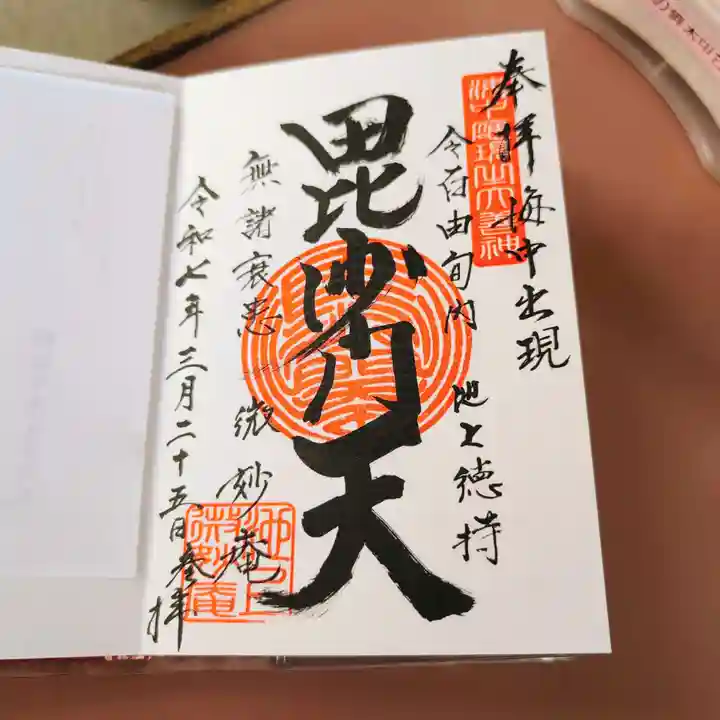 奉拝 海中出現
令百由旬内 池上徳持
毘沙門天
無諸衰患 微妙庵
令和七年三月二十五日参拝